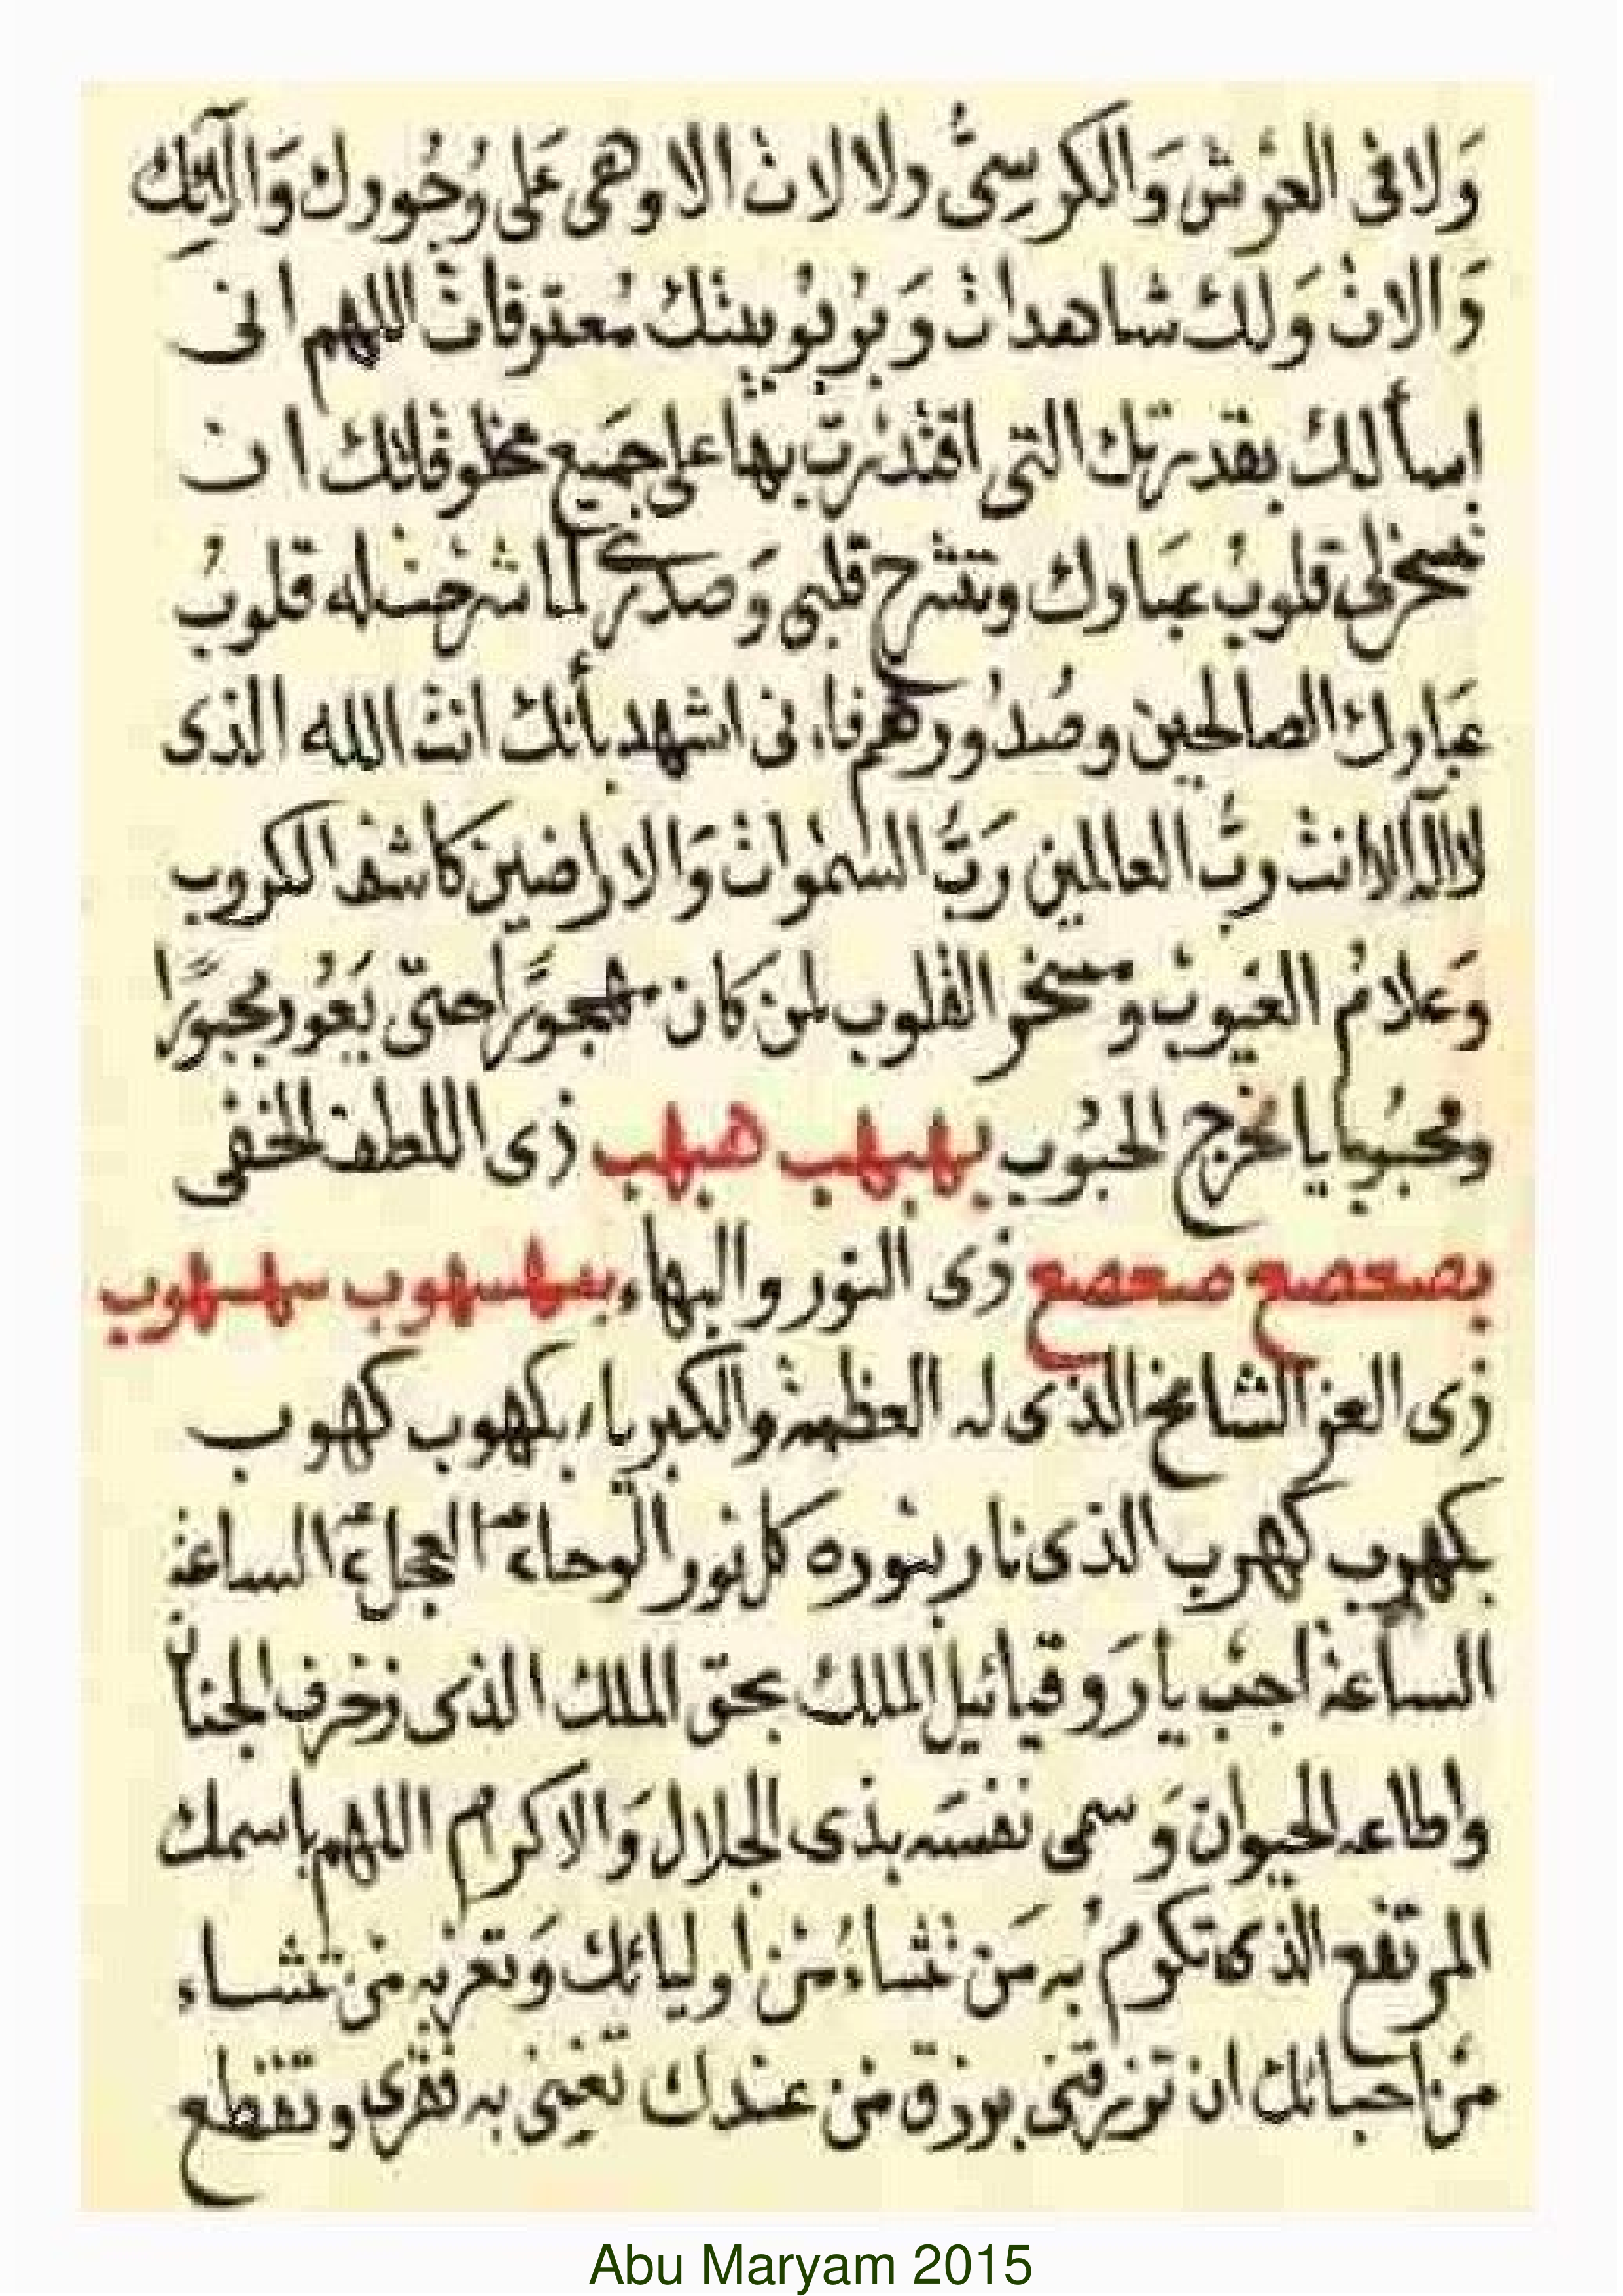 وَلا فى العَرْش وَالكرسِىُّ دلالات الا وهى عَلى وُجُودك وَآلآئِكَ
دَالات وَلك شاهدات وَبرُبُوبيتك مُعترفات اللهم انى
اسألك بقدرتك التى اقتدرت بها على جميع مخلوقاتك ان
تسخرلى قلوب عبادك وتشرح قلبى وَصدرى لما شرحت له قلوبُ
عبادك الصالحين وصُدُورهم فانى اشهد بأنك انت الله الذى
لا اله الا انت ربّ العالمين رَبُّ السموات وَالاراضين كاشف الكروب
وَعلامُ الغيوب ومسخر القلوب لمن كان مهجورًا حتّى يَعُود مجبورًا
ومحبُوبا يا مخرج الحبُوب بهبهب هبهب ذى اللطف الخفى
بصعصع صعصع ذى النور والبهاء بسهسهوب سهسهوب
ذى العز الشامخ الذى له العظمة والكبرياء بكهوب كهوب
بكهرب كهرب الذى نار بنوره كل نور الوحاء ٢ العجل ٢ الساعة
الساعة اجب يا رَوقيائيل الملك بحقّ الملك الذى زخرف الجنان
واطاعه الحيوان وَسمى نفسَه بذى الجلال وَالاكرام اللهم باسمك
المرتفع الذى تكرمُ به مَن تشاءُ من اوليائك وَتعز به من تشاء
من احبائك ان ترزقنى برزق من عندك تغنِى به فقرى وتقطع
Abu Maryam 2015